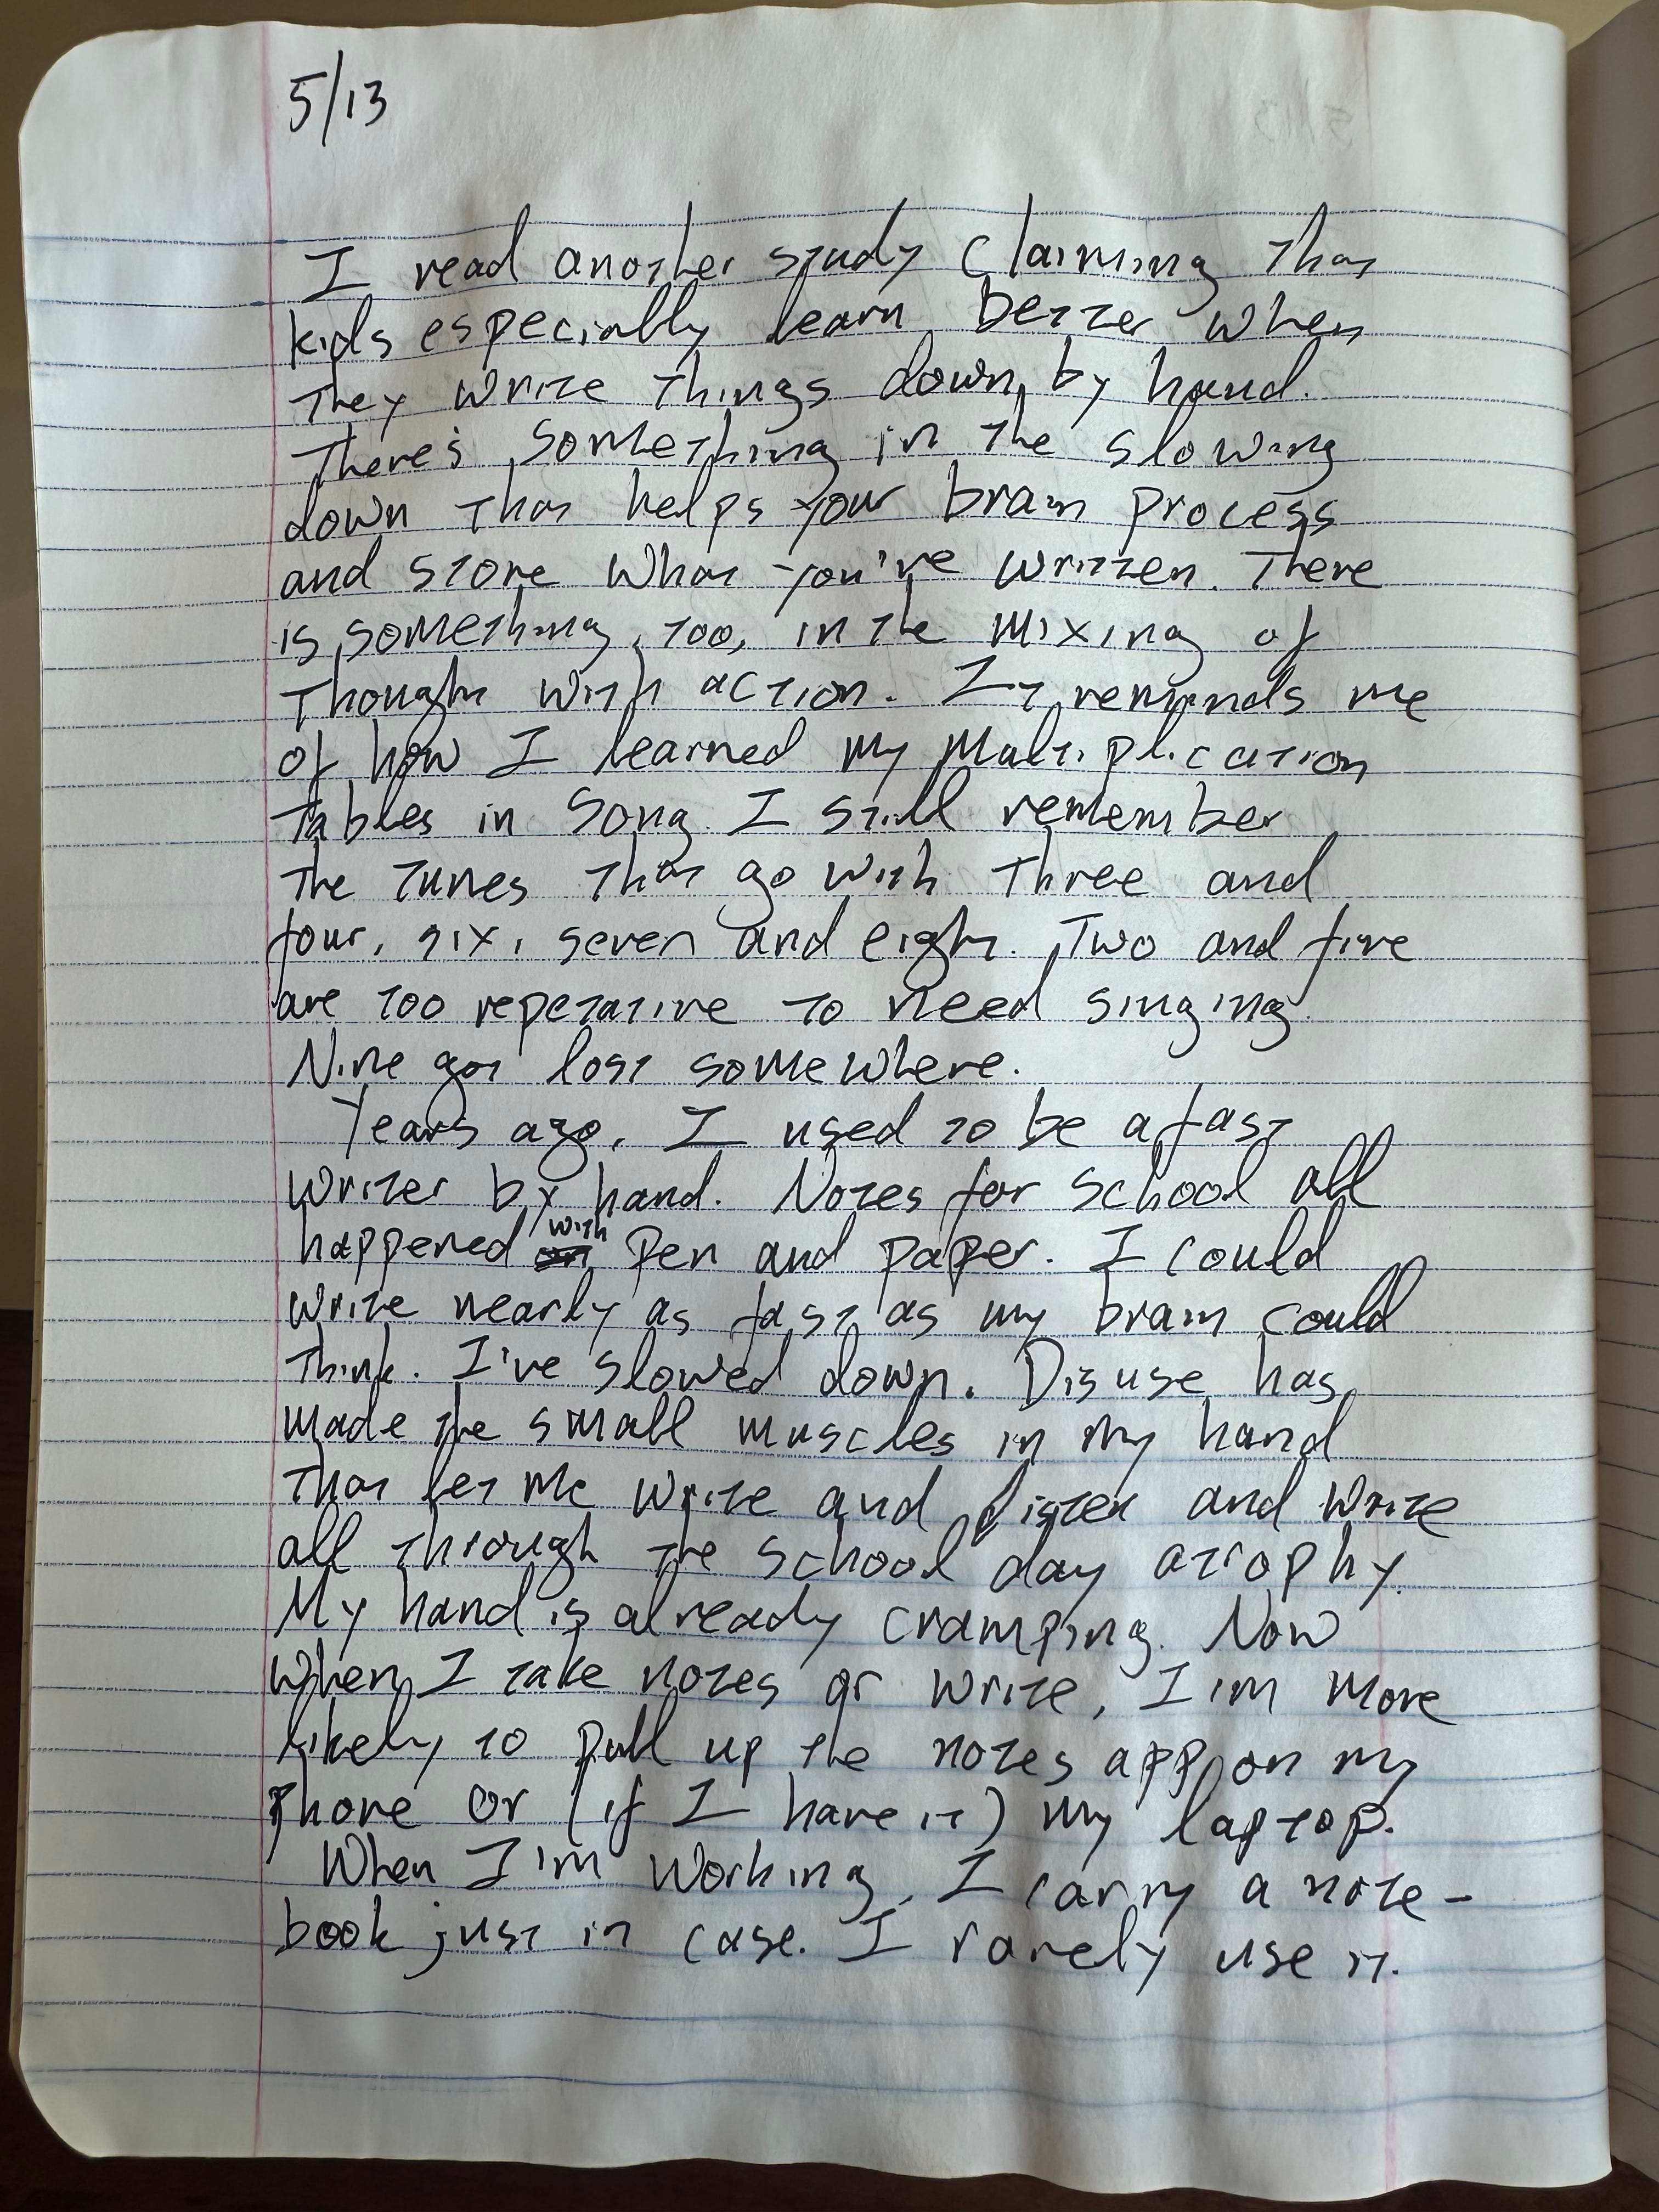 5/13
I read another study claiming that
kids especially learn better when
they write things down by hand.
There's something in the slowing
down that helps your brain process
and store what you've written. There
is something, too, in the mixing of
thought with action. It reminds me
of how I learned my multiplication
tables in song. I still remember
the tunes that go with three and
four, six, seven and eight. Two and five
are too repetative to need singing.
Nine got lost somewhere.
Years ago, I used to be a fast
writer by hand. Notes for school all
happened with pen and paper. I could
write nearly as fast as my brain could
think. I've slowed down. Disuse has
made the small muscles in my hand
that let me write and listen and write
all through the school day atrophy.
My hand is already cramping. Now
when I take notes or write, I'm more
likely to pull up the notes app on my
phone or (if I have it) my laptop.
When I'm working, I carry a note-
book just in case. I rarely use it.